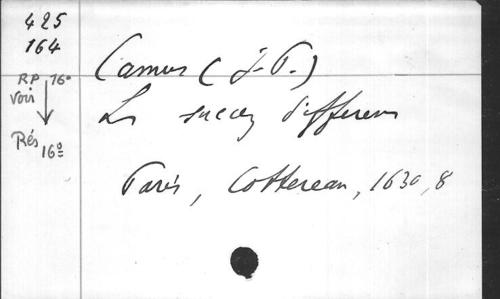 425
164
RP 16°
voir
Rés 16°
Camus (J-P.)
Les succez differens
Paris, Cottereau, 1630, 8